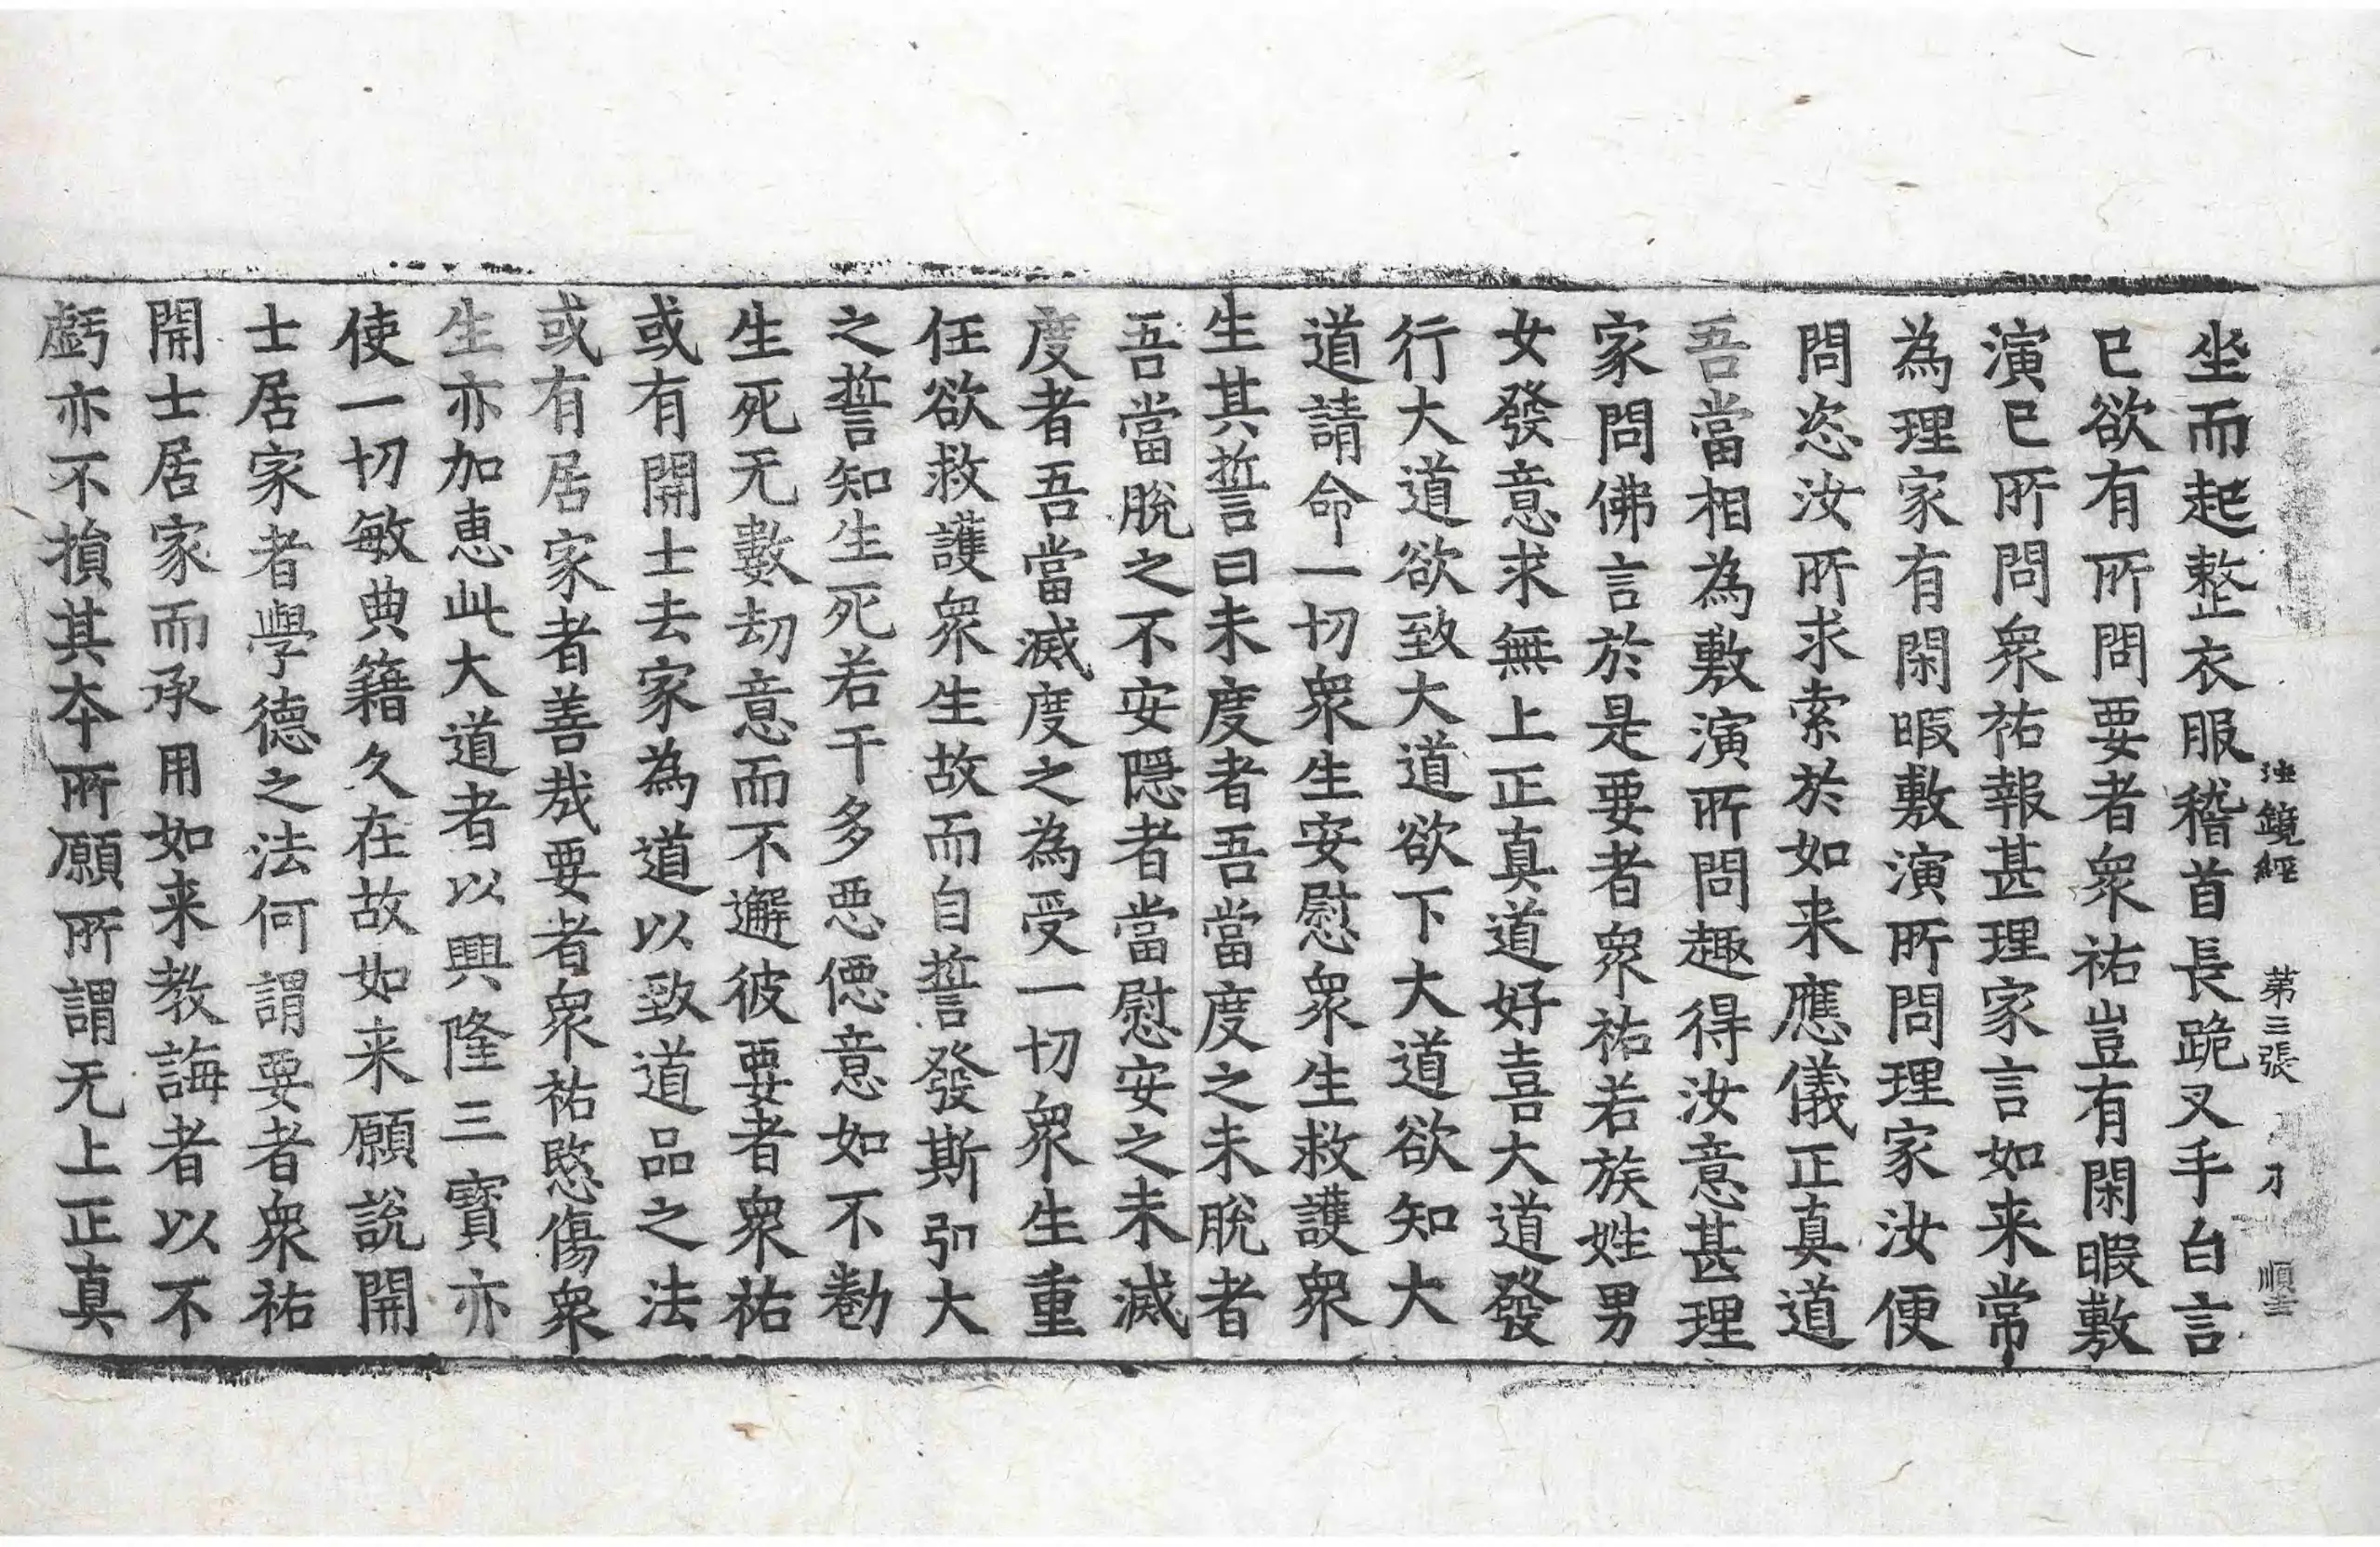 法鏡經 第三張 順
坐而起整衣服稽首長跪叉手白言
已欲有所問要者衆祐豈有閑暇敷
演已所問衆祐報甚理家言如来常
為理家有閑暇敷演所問理家汝便
問恣汝所求索於如来應儀正真道
吾當相為敷演所問趣得汝意甚理
家問佛言於是要者衆祐若族姓男
女發意求無上正真道好喜大道發
行大道欲致大道欲下大道欲知大
道請命一切衆生安慰衆生救護衆
生其誓曰未度者吾當度之未脫者
吾當脫之不安隱者當慰安之未滅
度者吾當滅度之為受一切衆生重
任欲救護衆生故而自誓發斯弘大
之誓知生死若干多惡㥶意如不勌
生死无數劫意而不邂彼要者衆祐
或有開士去家為道以致道品之法
或有居家者善哉要者衆祐愍傷衆
生亦加恵此大道者以興隆三寳亦
使一切敏典籍久在故如来願說開
士居家者學德之法何謂要者衆祐
開士居家而承用如来教誨者以不
虧亦不損其夲所願所謂无上正真